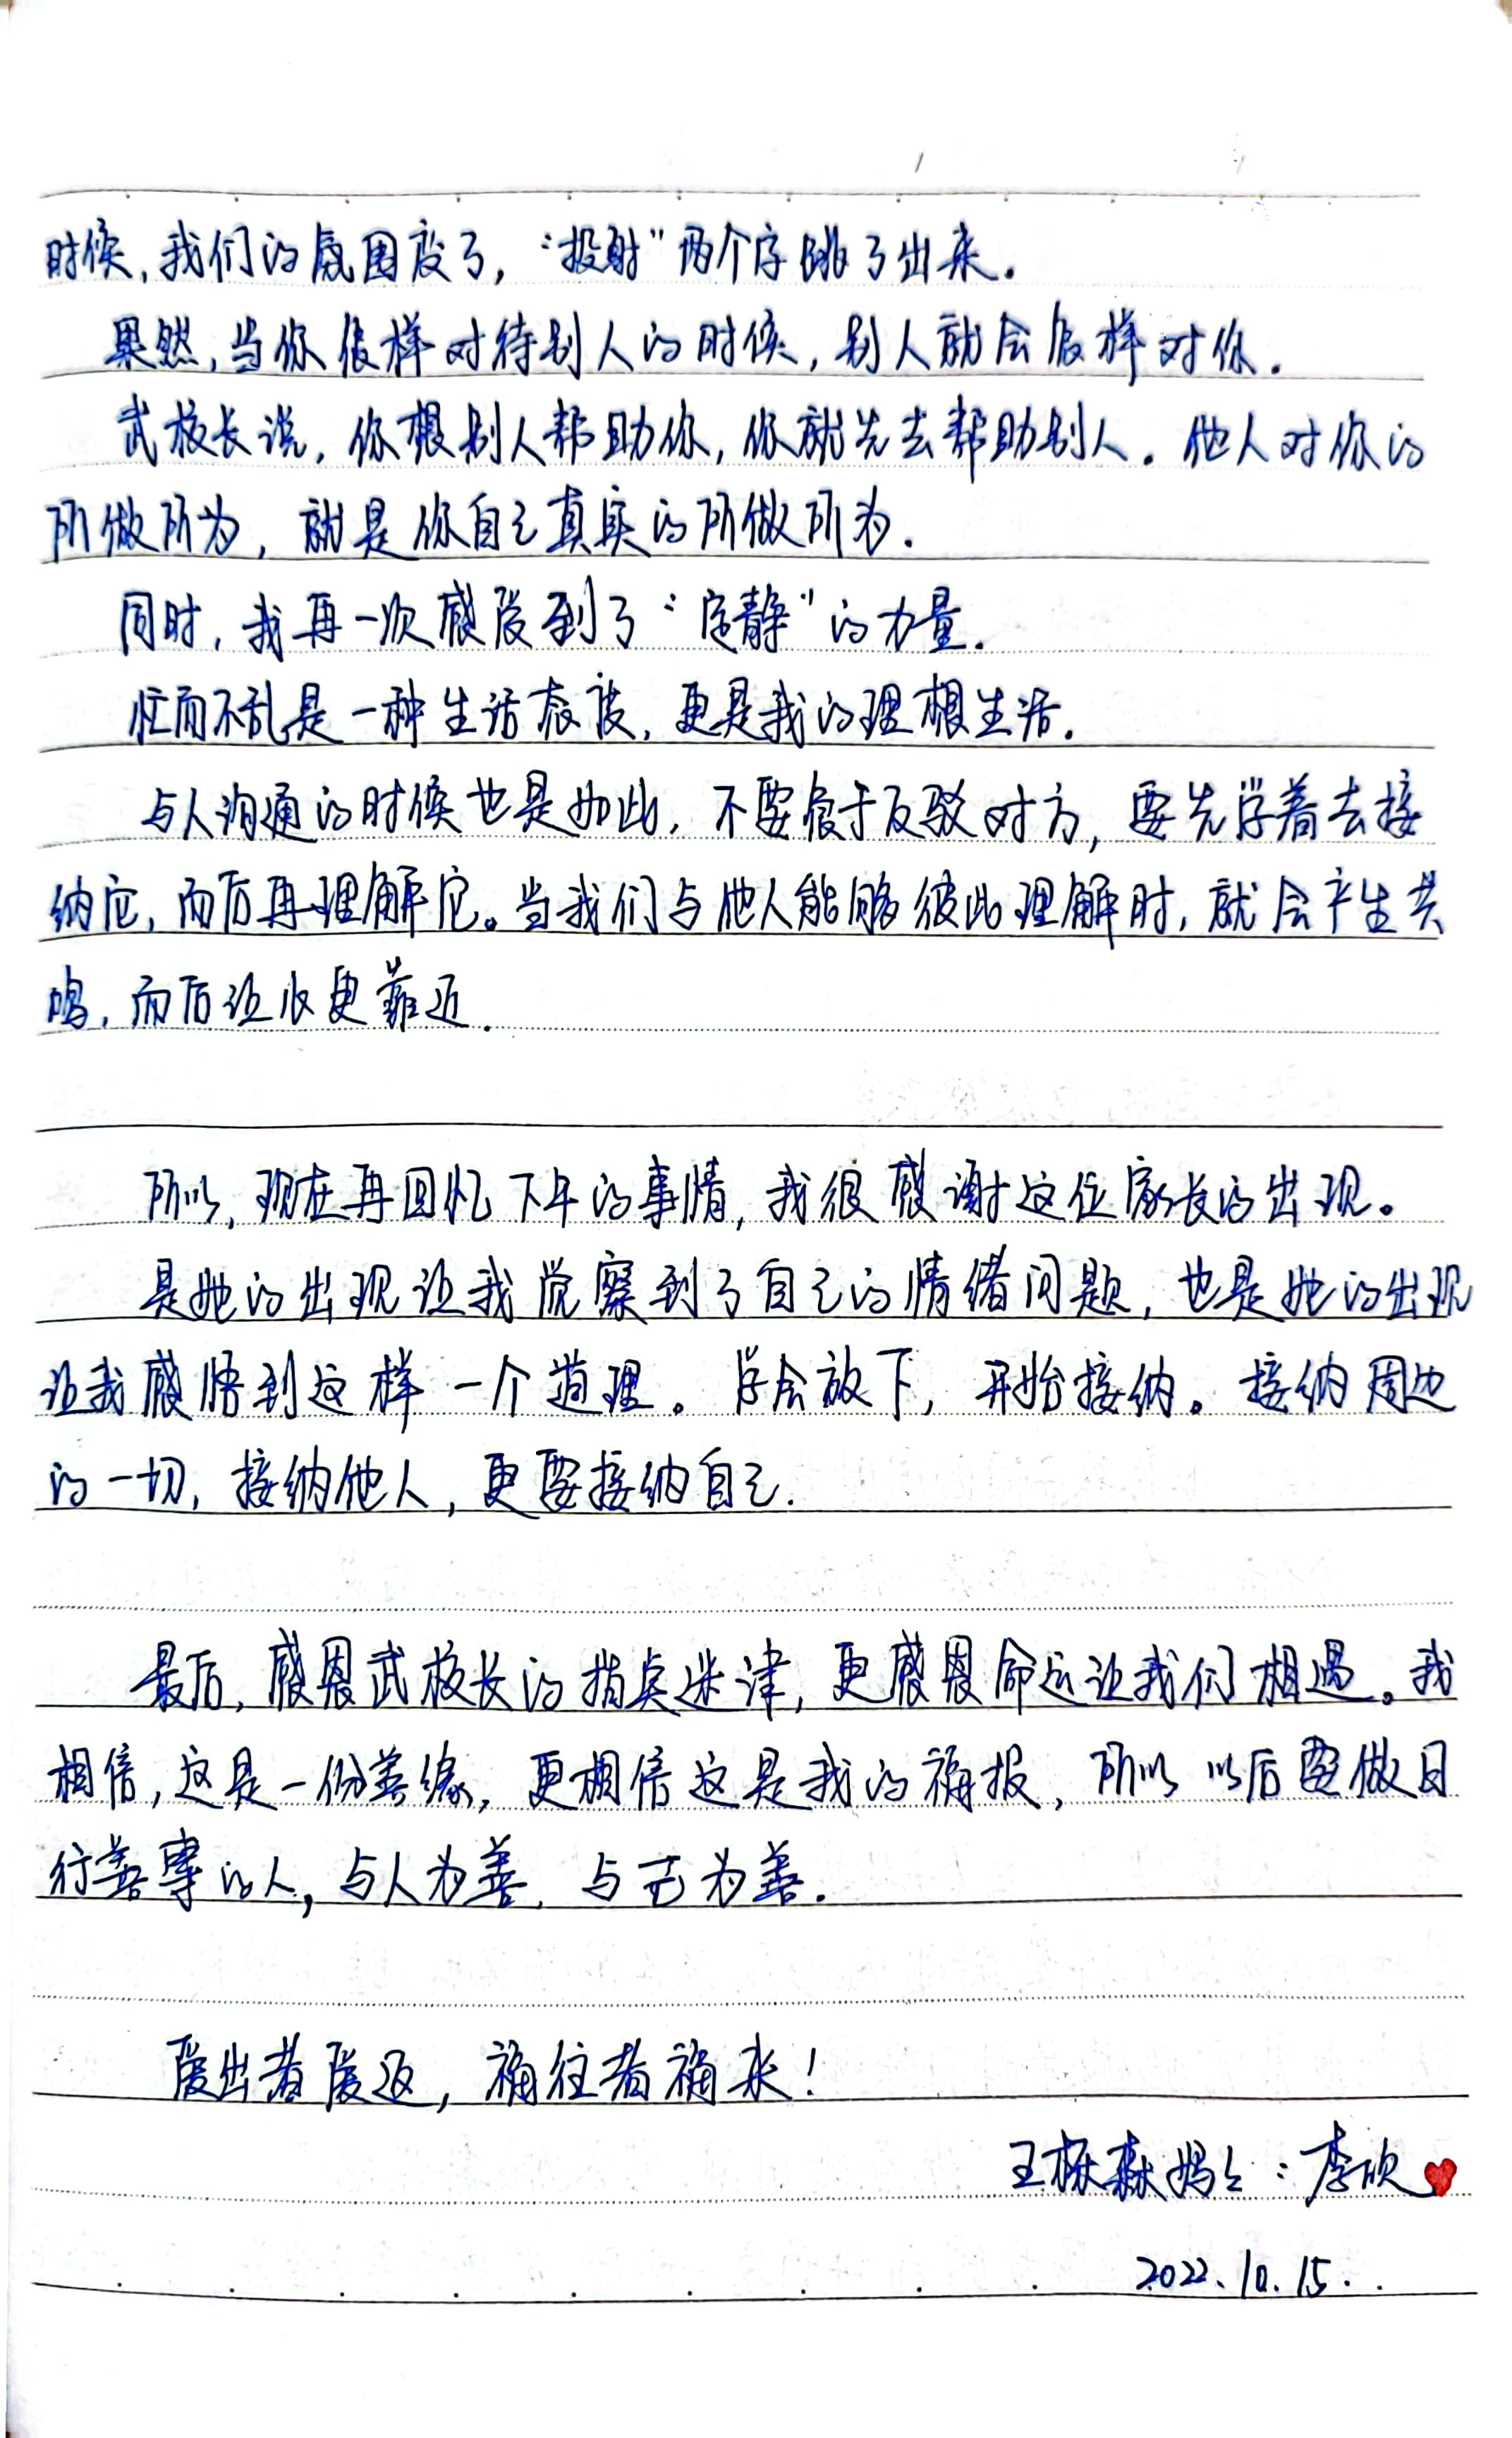 时候，我们的氛围变了，“投射”两个字跳了出来。
果然，当你怎样对待别人的时候，别人就会怎样对你。
武校长说，你想别人帮助你，你就先去帮助别人。他人对你的
所做所为，就是你自己真实的所做所为.
同时，我再一次感受到了“定静”的力量.
忙而不乱是一种生活态度，更是我的理想生活.
与人沟通的时候也是如此，不要急于反驳对方，要先学着去接
纳它，而后再理解它。当我们与他人能够彼此理解时，就会产生共
鸣，而后让心更靠近.
所以，现在再回忆下午的事情，我很感谢这位家长的出现。
是她的出现让我觉察到了自己的情绪问题，也是她的出现
让我感悟到这样一个道理。学会放下，开始接纳。接纳周边
的一切，接纳他人，更要接纳自己.
最后，感恩武校长的指点迷津，更感恩命运让我们相遇。我
相信，这是一份善缘，更相信这是我的福报，所以以后要做日
行善事的人，与人为善，与己为善.
爱出者爱返，福往者福来！
王栎森妈妈：李欣
2022.10.15.